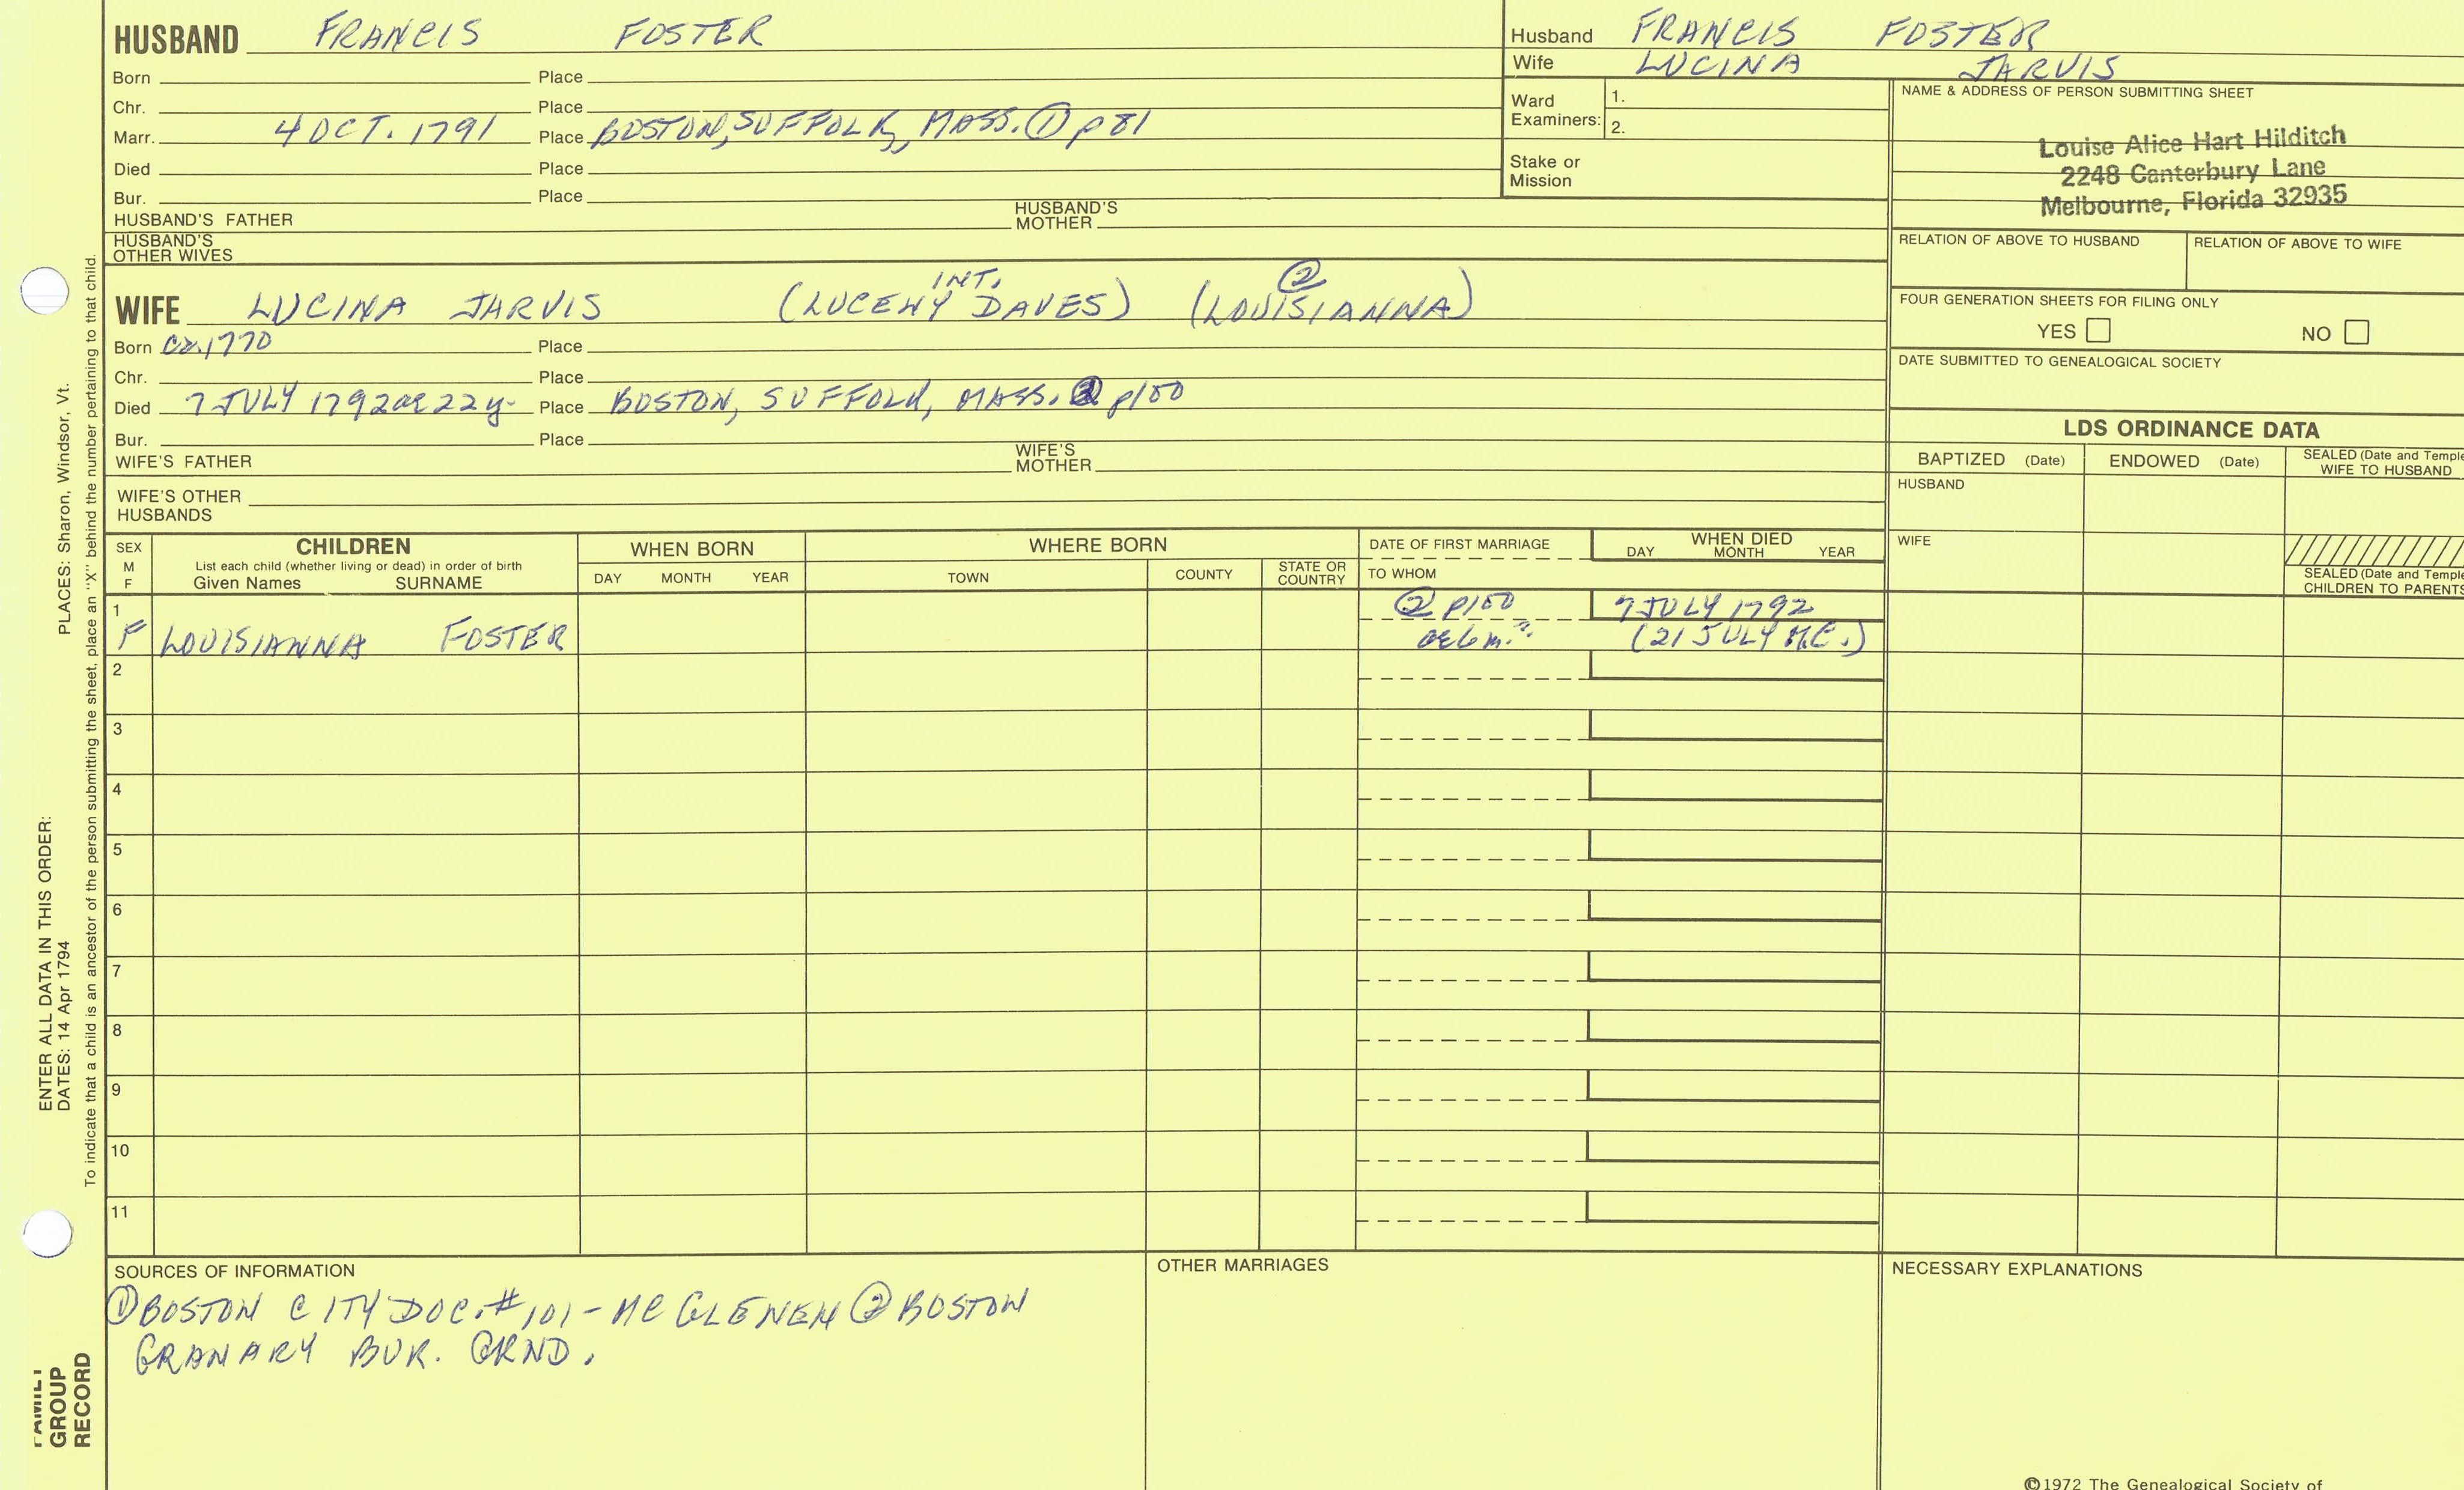 HUSBAND FRANCIS FOSTER
Born Place
Chr. Place
Marr. 4 OCT. 1791 Place BOSTON, SUFFOLK, MASS. ① p 81
Died Place
Bur. Place
HUSBAND'S FATHER HUSBAND'S MOTHER
HUSBAND'S OTHER WIVES
INT. ②
WIFE LUCINA JARVIS (LUCENY DAVES) (LOUISIANNA)
Born ca. 1770 Place
Chr. Place
Died 7 JULY 1792 ae 22 y. Place BOSTON, SUFFOLK, MASS. ② p100
Bur. Place
WIFE'S FATHER WIFE'S MOTHER
WIFE'S OTHER HUSBANDS
Husband FRANCIS FOSTER
Wife LUCINA JARVIS
Ward Examiners: 1.
2.
Stake or Mission
NAME & ADDRESS OF PERSON SUBMITTING SHEET
Louise Alice Hart Hilditch
2248 Canterbury Lane
Melbourne, Florida 32935
RELATION OF ABOVE TO HUSBAND RELATION OF ABOVE TO WIFE
FOUR GENERATION SHEETS FOR FILING ONLY
YES NO
DATE SUBMITTED TO GENEALOGICAL SOCIETY
LDS ORDINANCE DATA
BAPTIZED (Date) ENDOWED (Date) SEALED (Date and Temple
WIFE TO HUSBAND
HUSBAND
WIFE
SEALED (Date and Temple
CHILDREN TO PARENTS
SEX
M
F
CHILDREN
List each child (whether living or dead) in order of birth
Given Names SURNAME
WHEN BORN
DAY MONTH YEAR
WHERE BORN
TOWN COUNTY STATE OR COUNTRY
DATE OF FIRST MARRIAGE
TO WHOM
WHEN DIED
DAY MONTH YEAR
1 ② p100 7 JULY 1792
F LOUISIANNA FOSTER ae 6 m. (21 JULY M.C.)
2
3
4
5
6
7
8
9
10
11
SOURCES OF INFORMATION
① BOSTON CITY DOC. #101 - MC GLENEN ② BOSTON
GRANARY BUR. GRND.
OTHER MARRIAGES
NECESSARY EXPLANATIONS
©1972 The Genealogical Society of
PLACES: Sharon, Windsor, Vt.
ENTER ALL DATA IN THIS ORDER:
DATES: 14 Apr 1794
To indicate that a child is an ancestor of the person submitting the sheet, place an "X" behind the number pertaining to that child.
FAMILY
GROUP
RECORD